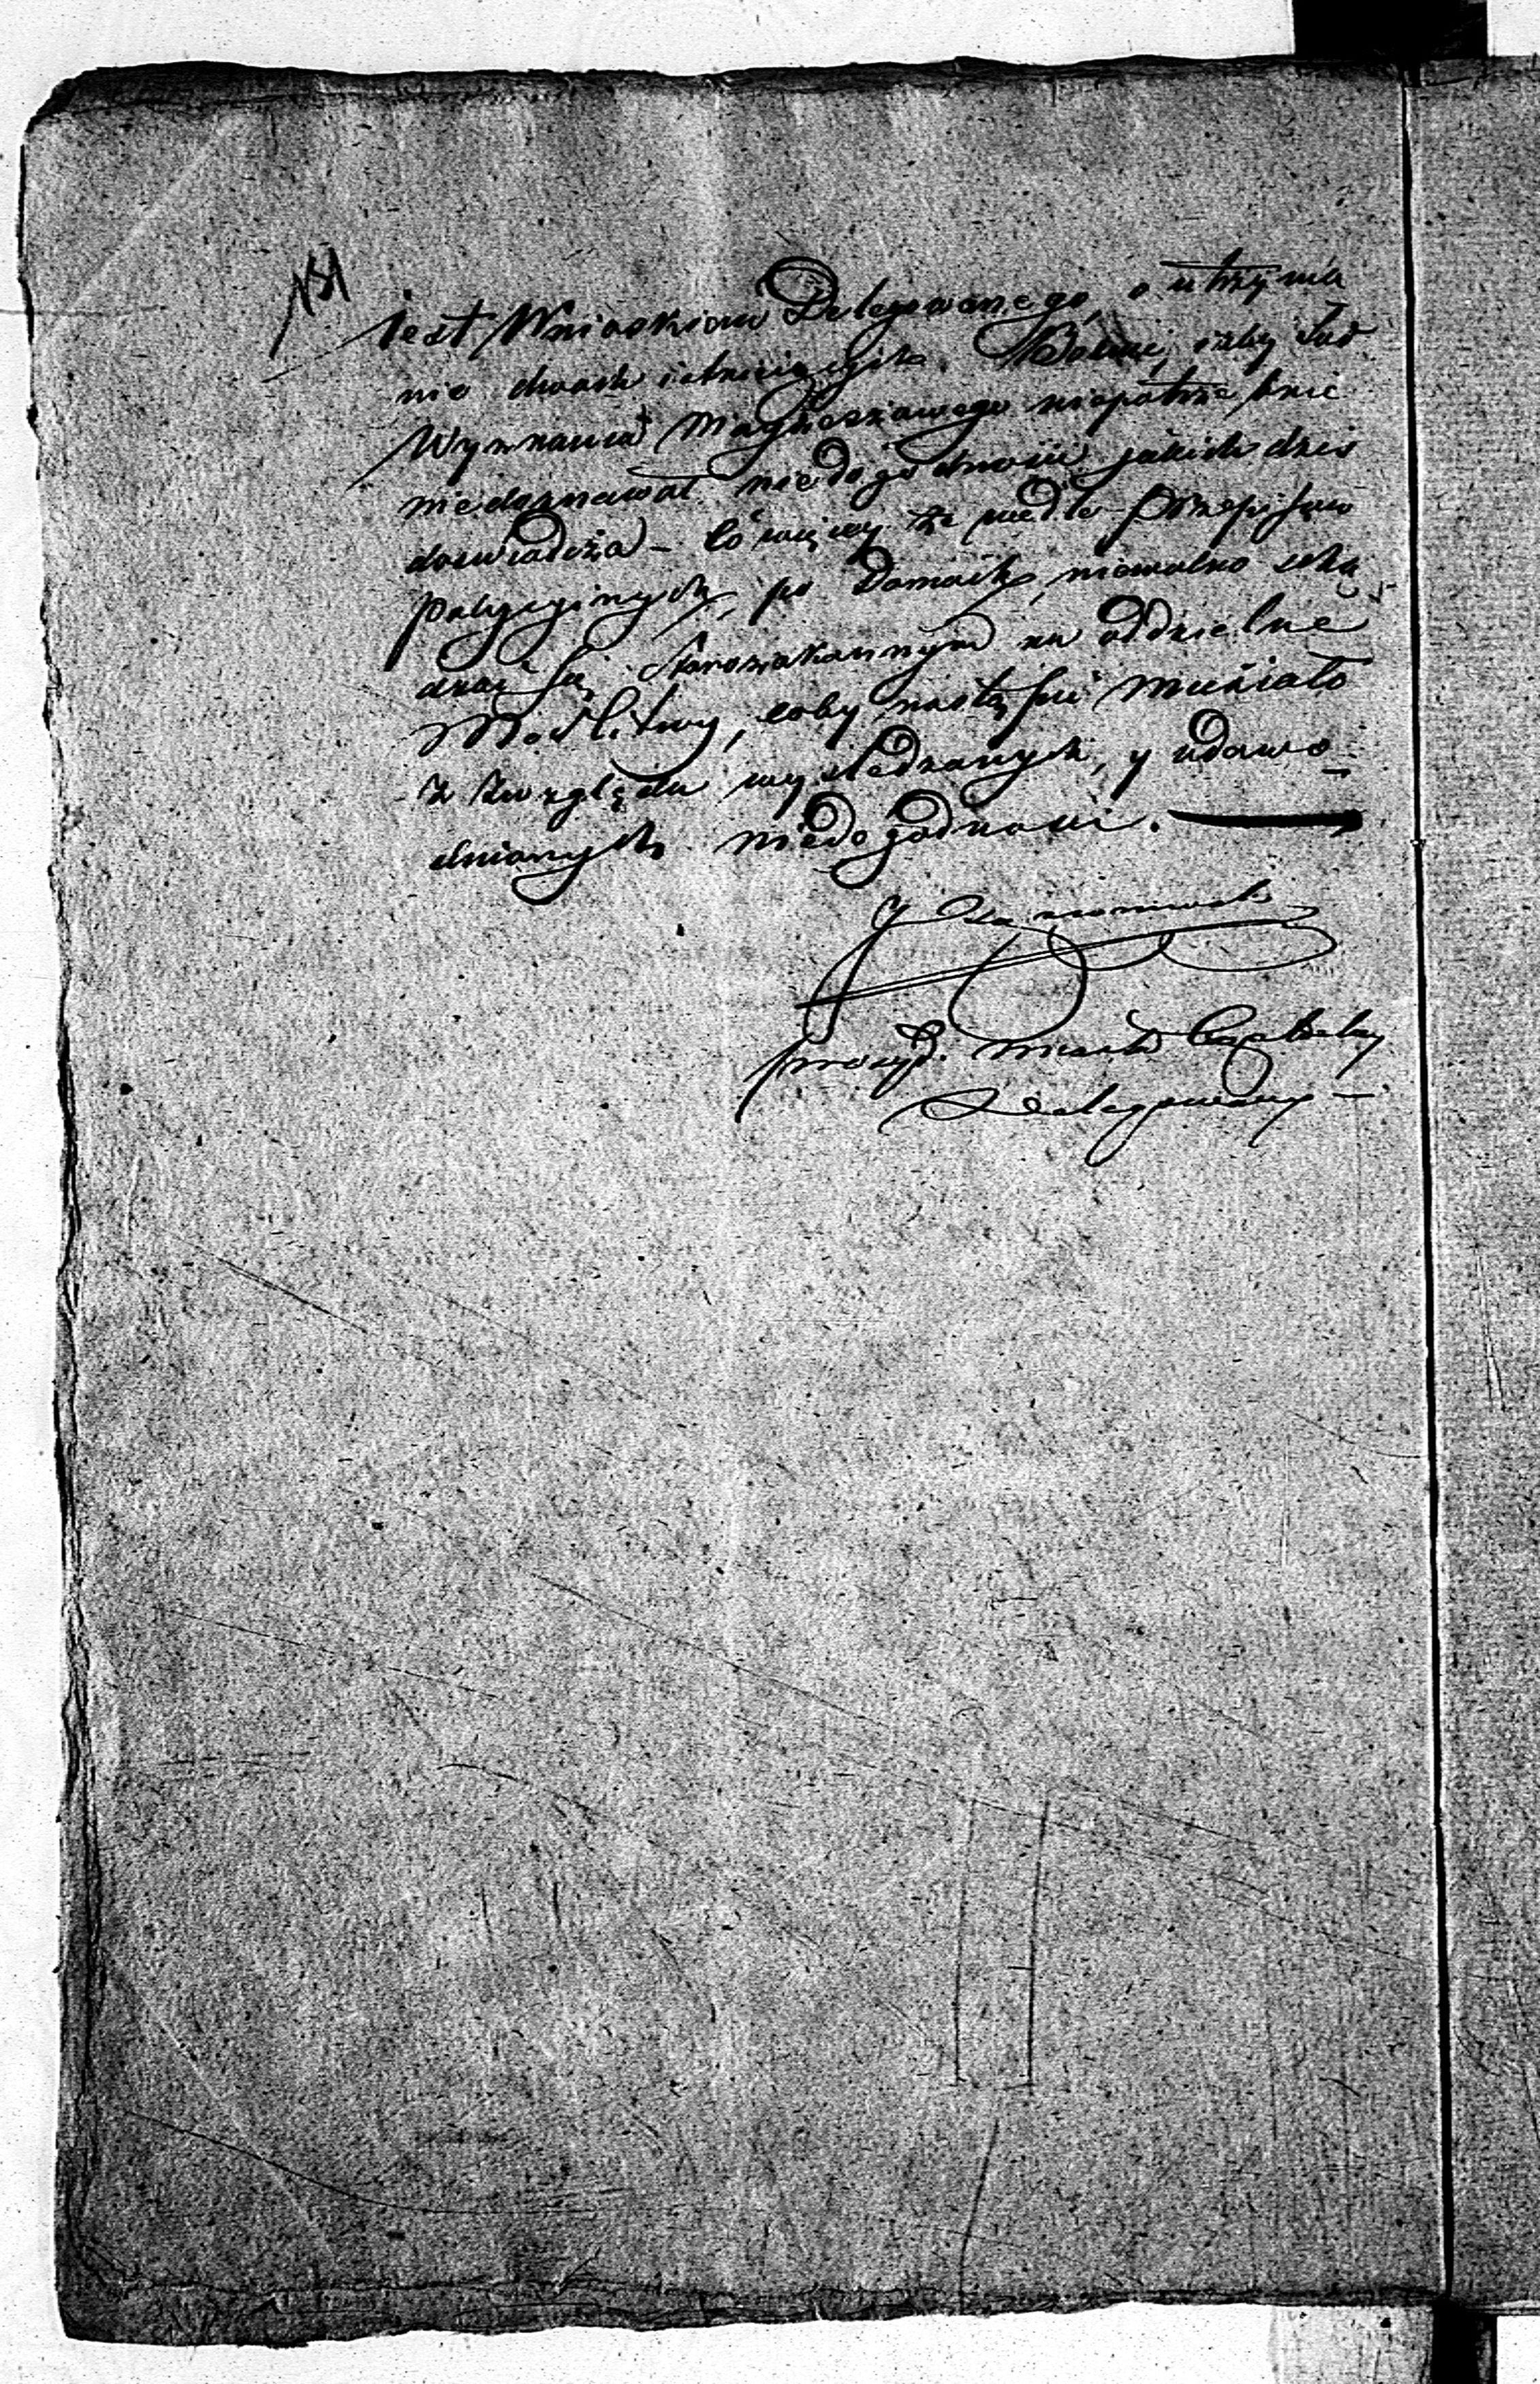 jest Wnioskiem Delegowanego, o utrzyma
nie dwóch istniejących Bóżnic, iżby lud
Wyznania Mojżeszowego niepotrzebnie
niedoznawał niedogodności jakich dziś
doswiadcza – to więcey że wedle Przepisow
policyinych, po Domach, niewolno scha
dzać się Starozakonnym na oddzielne
Modlitwy, coby nastąpić musiało
z względu wysledzonych, y udowo
dnionych niedogodności.
miasta
Delegowany